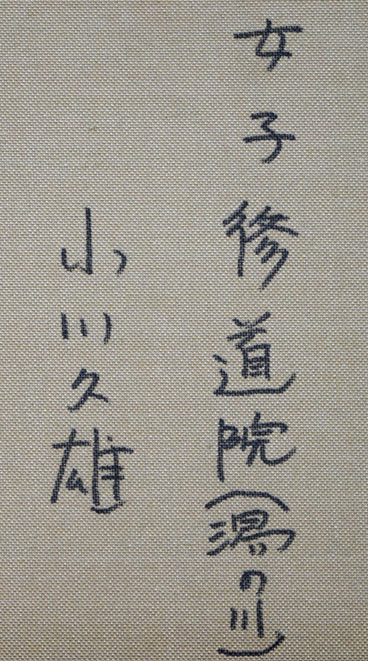 女子修道院(湯の川)
小川久雄